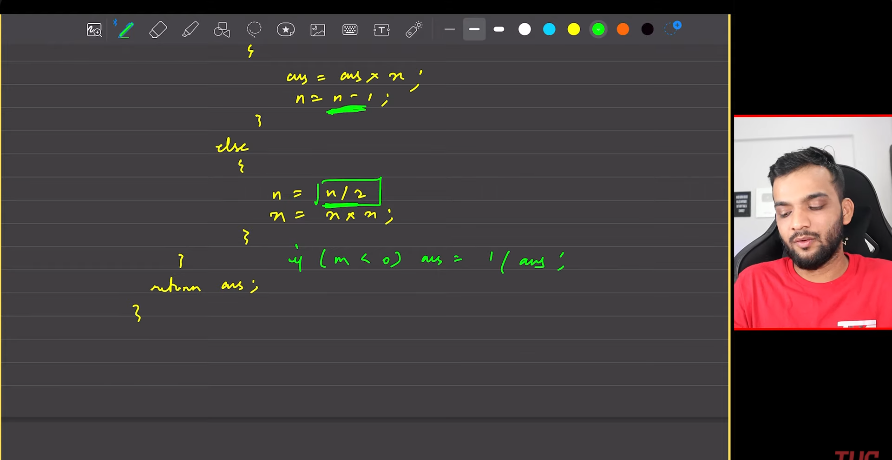 {
ans = ans × x ;
n = n - 1 ;
}
else
{
n = n / 2
x = x × x ;
}
}
if ( m < 0 ) ans = 1 / ans ;
return ans ;
}